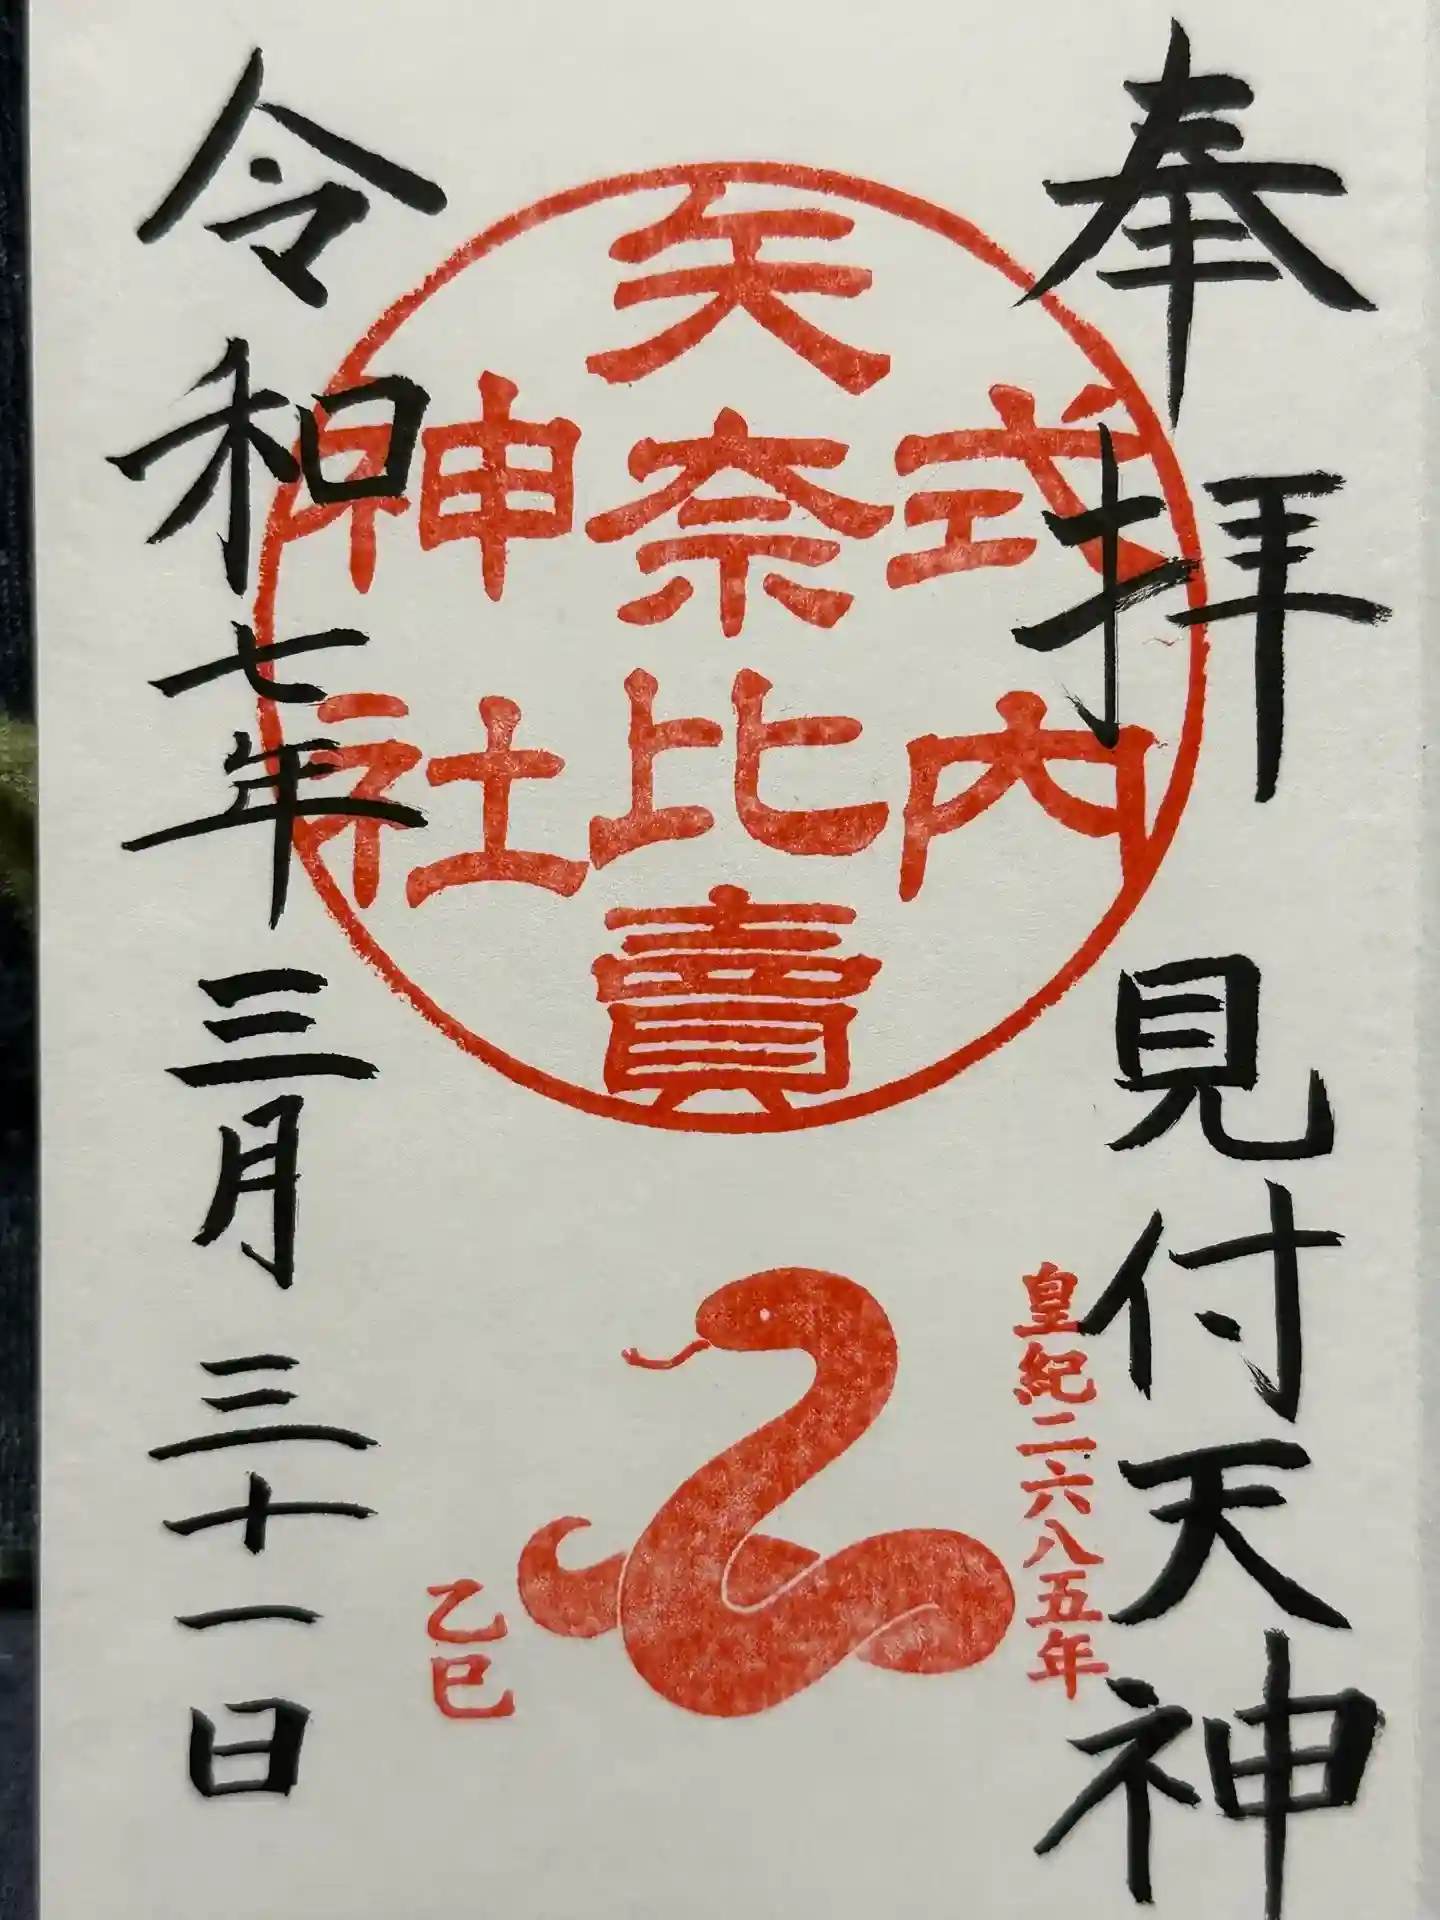 奉拝 見付天神
皇紀二六八五年
式内
矢奈比賣
神社
乙巳
令和七年三月三十一日